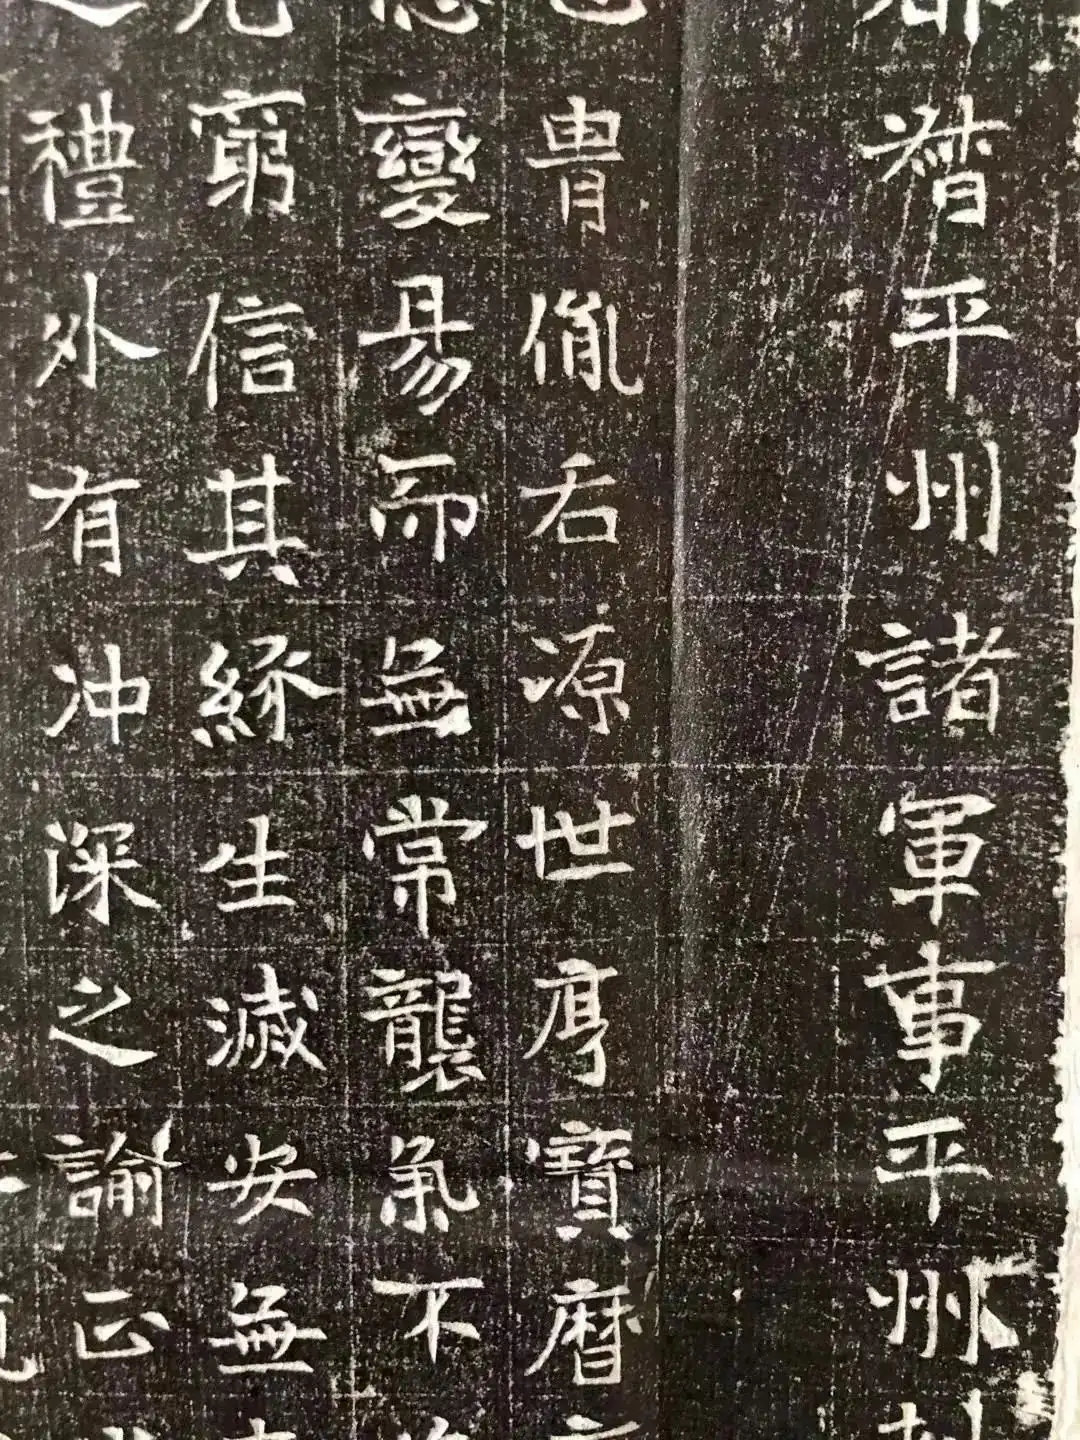 督平州諸軍事平州
胄胤右源世厚寶曆
變易而無常襲氣不
窮信其緣生滅安無
禮外有冲深之諭正